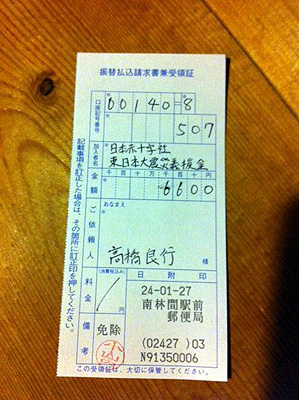 振替払込請求書兼受領証
口座記号番号
00140=8
507
加入者名
日本赤十字社
東日本大震災義援金
金額
千百十万千百十円
6600
ご依頼人
おなまえ
高橋良行 様
料金
(消費税込み)
免除
備考
日附印
24-01-27
南林間駅前
郵便局
(02427)03
N91350006
記載事項を訂正した場合は、その箇所に訂正印を押してください。
この受領証は、大切に保管してください。